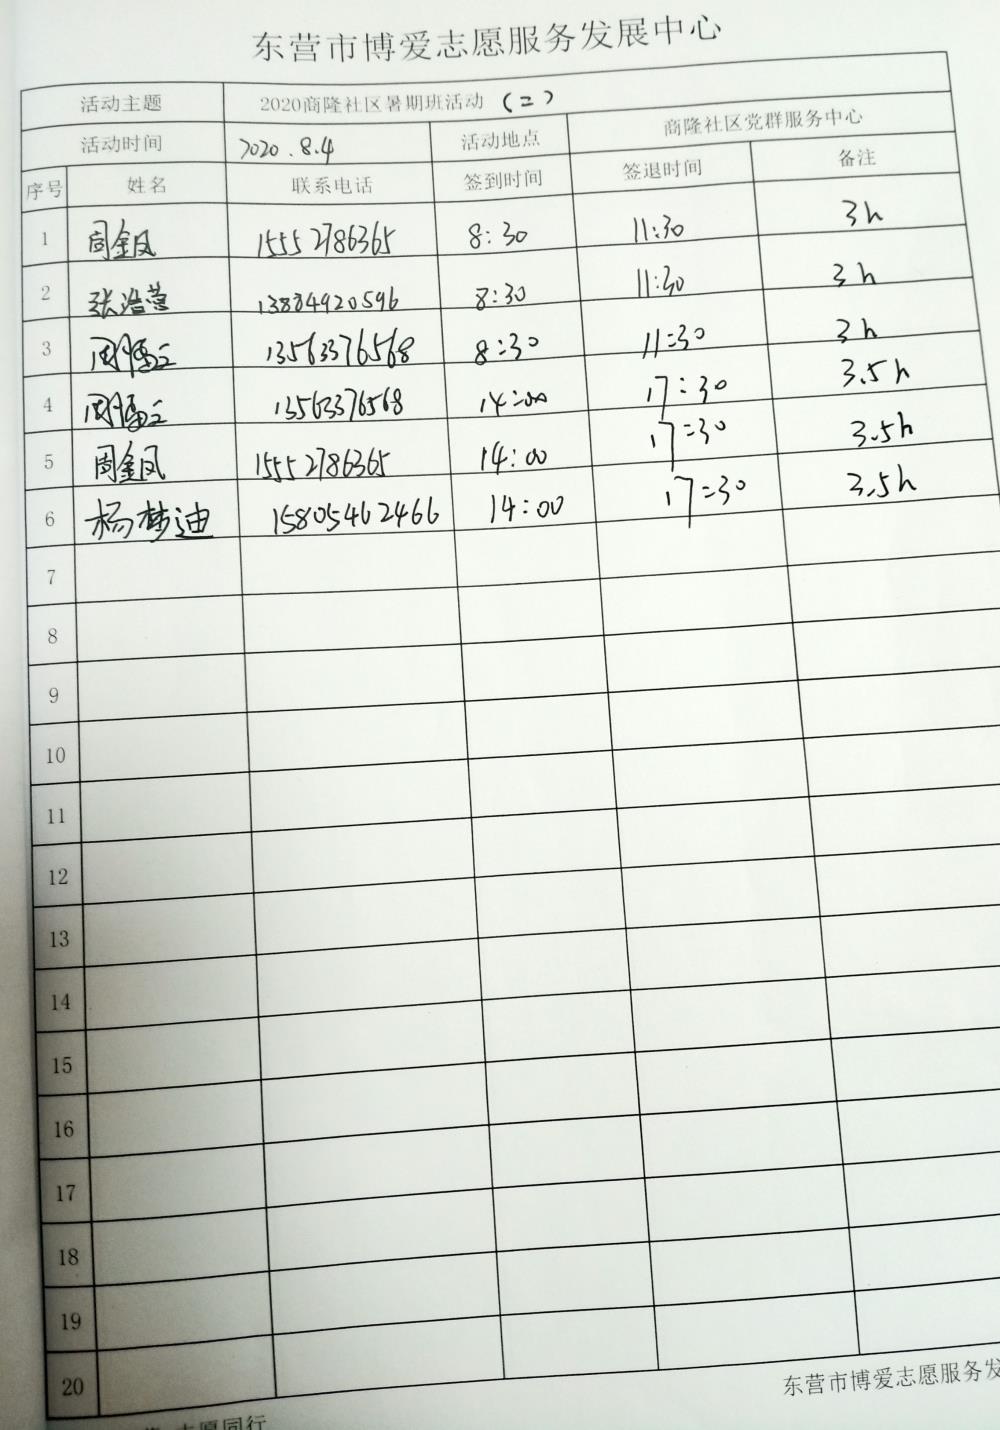 东营市博爱志愿服务发展中心
活动主题 2020商隆社区暑期班活动 (二)
活动时间 2020.8.4 活动地点 商隆社区党群服务中心
序号 姓名 联系电话 签到时间 签退时间 备注
1 周金凤 15552786365 8:30 11:30 3h
2 张浩 13884920596 8:30 11:30 3h
3 周 13563376568 8:30 11:30 3h
4 周 13563376568 14:00 17:30 3.5h
5 周金凤 15552786365 14:00 17:30 3.5h
6 杨梦迪 15805462466 14:00 17:30 3.5h
7
8
9
10
11
12
13
14
15
16
17
18
19
20
东营市博爱志愿服务发
志愿同行